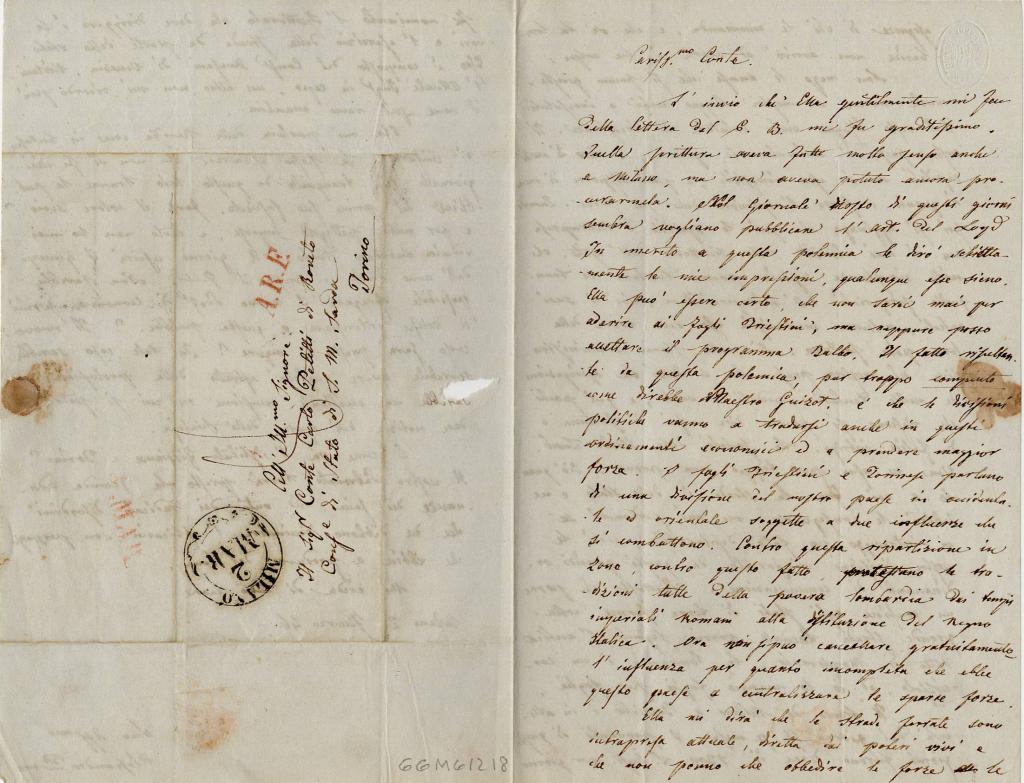 A.R.F.
All' Ill.mo Signore
Il Sigr Conte Carlo Petitti di Roreto
Consre di Stato di S. M. Sarda
Torino
MILANO
MAR.
2
GGMG1218
Cariss.mo Conte.
L' invio ch' Ella gentilmente mi fece
della lettera del C. B. mi fu graditissimo.
Quella scrittura aveva fatto molto senso anche
a Milano, ma non aveva potuto ancora pro-
curarmela. Nel Giornale di questi giorni
sembra vogliano pubblicare l' art. del Loyd
In merito a questa polemica le dirò schietta-
mente le mie impressioni, qualunque esse sieno.
Ella può essere certo, che non sarei mai per
aderire ai fogli Triestini, ma neppure posso
accettare il programma Balbo. Il fatto risultan-
te da questa polemica, pur troppo compiuto
come direbbe Maestro Guizot, è che le divisioni
politiche vanno a tradursi anche in questi
ordinamenti economici ed a prendere maggior
forza. I fogli Triestini e Torinese parlano
di una divisione del nostro paese in occidenta-
le ed orientale soggette a due influenze che
si combattono. Contro questa ripartizione in
zone, contro questo fatto, protestano le tra-
dizioni tutte della povera lombardia dai tempi
imperiali Romani alla istituzione del Regno
Italico. Ora non si può cancellare gratuitamente
l' influenza per quanto incompleta che ebbe
questo paese a centralizzare le sparse forze.
Ella mi dirà che le strade ferrate sono
intrapresa attuale, diretta dai poteri vivi e
che non ponno che obbedire le forze le